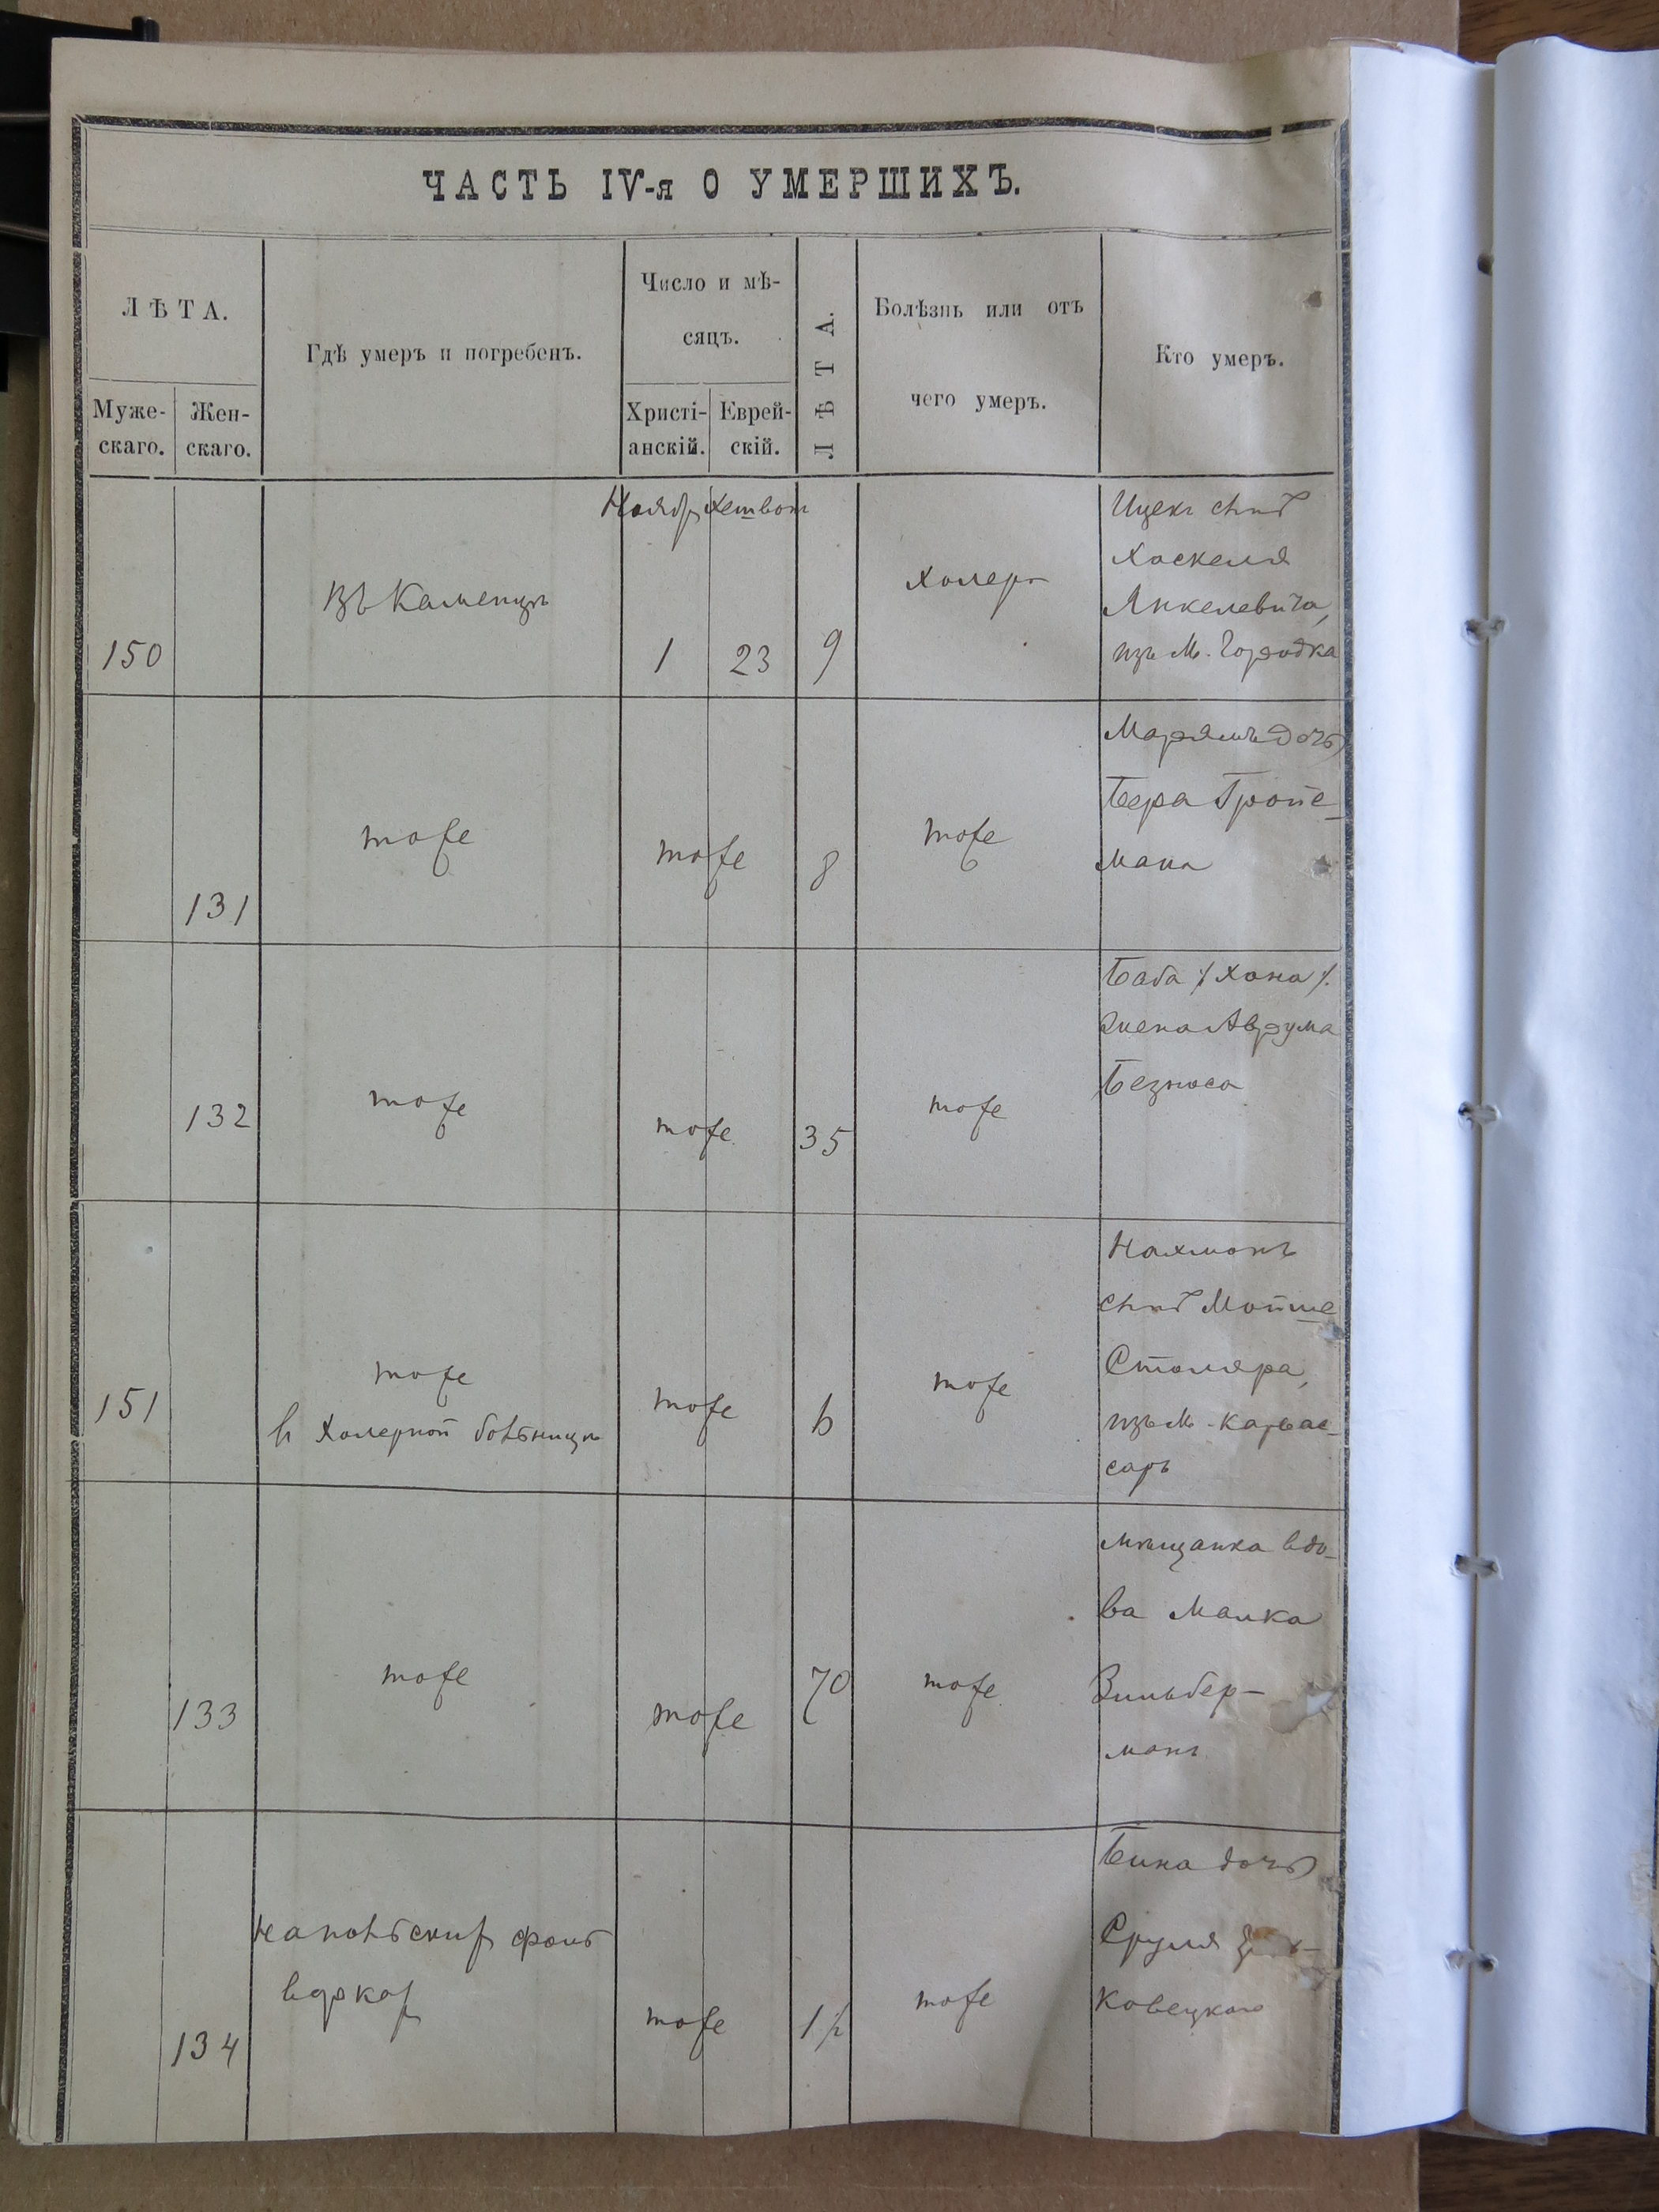 ЧАСТЬ IV-я О УМЕРШИХЪ.
ЛѢТА.
Муже-
скаго.
Жен-
скаго.
Гдѣ умеръ и погребенъ.
Число и мѣ-
сяцъ.
Христі-
анскій.
Еврей-
скій.
ЛѢТА.
Болѣзнь или отъ
чего умеръ.
Кто умеръ.
150
въ Каменцѣ
Ноябр Хешвон
1 23 9
Холера
Ицекъ сынъ
Хаскеля
Янкелевича,
изъ м. Городка
131
тоже
тоже
8
тоже
Марямъ дочь
Бера Гройс-
мана
132
тоже
тоже
35
тоже
Баба /Хана/.
жена Аврума
Безноса
151
тоже
в Холерной больницѣ
тоже
6
тоже
Нахманъ
сынъ Мойше
Столяра,
изъ м. Карвас-
саръ
133
тоже
тоже
70
тоже
мѣщанка вдо-
ва Малка
Зильбер-
манъ
134
на польских фоль
варках
тоже
1½
тоже
Бина дочь
Сруля
ковецкаго